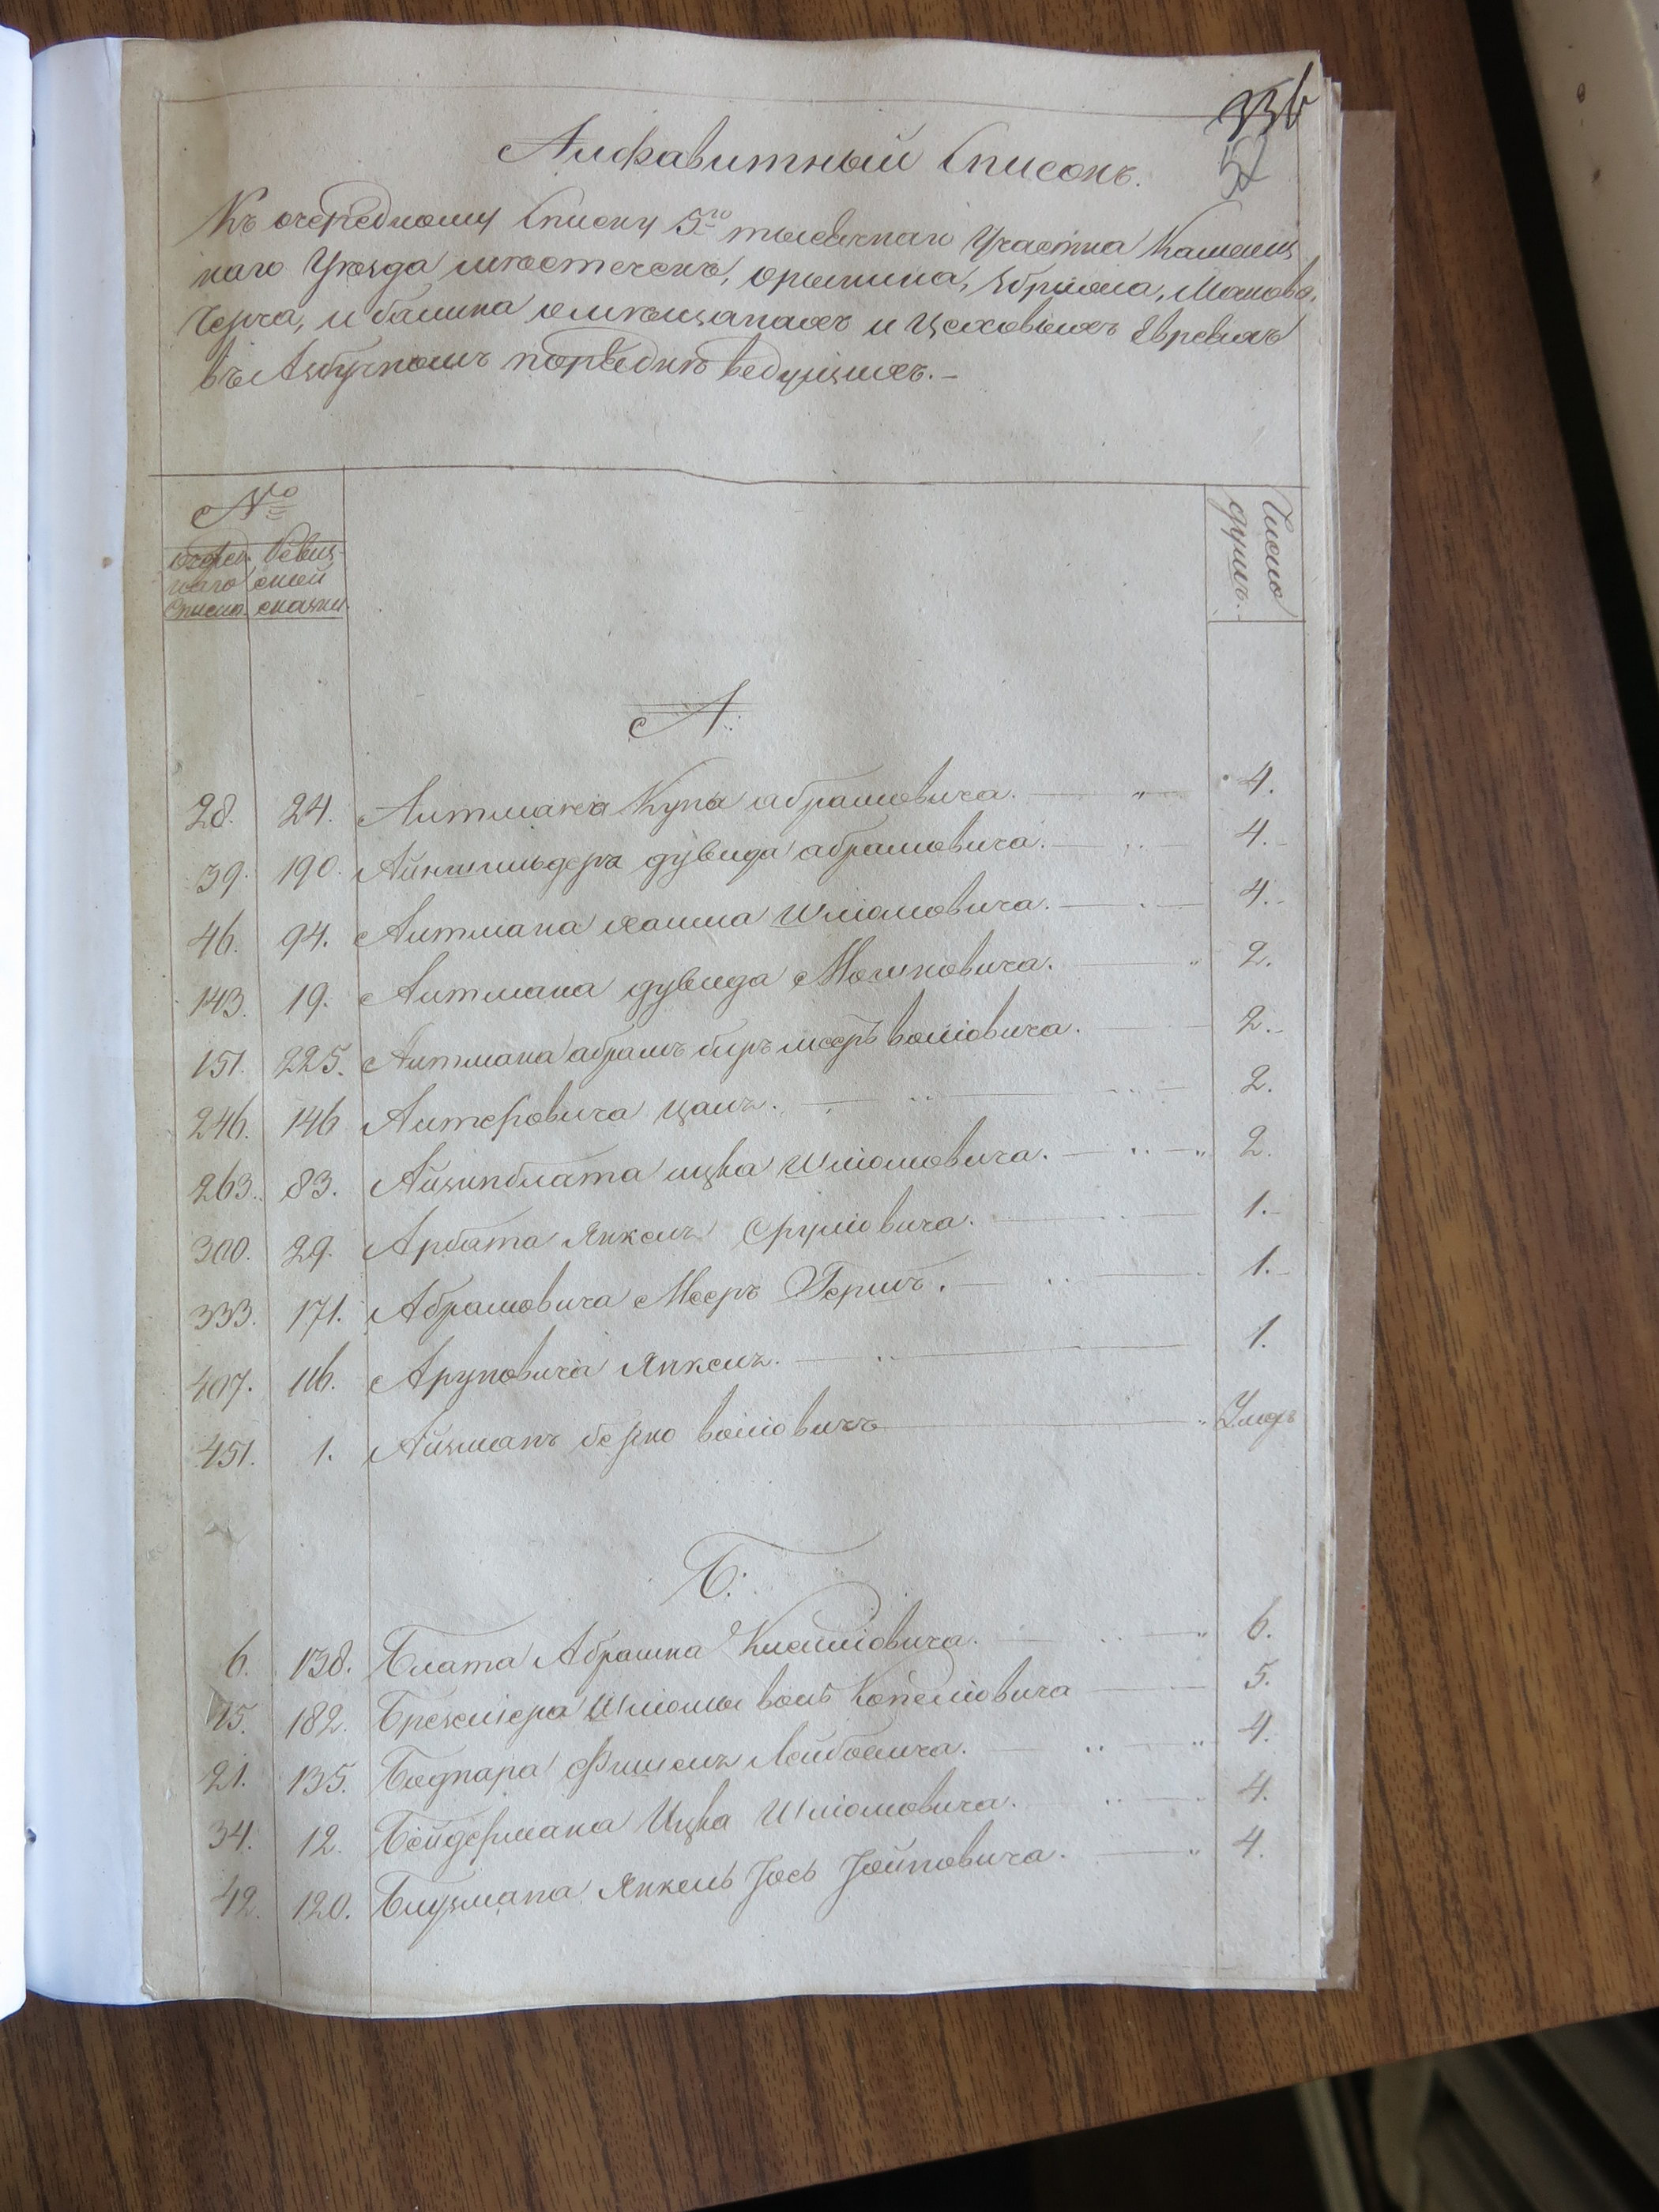 336
52
Алфавитный Списокъ.
Къ очередному Списку 5го тысячнаго Участка Каменец
каго Уезда местечекъ, орынина, Збрижа, Маково,
Черча, и балина о мещанахъ и Цеховыхъ Евреяхъ
въ Азбучномъ порядке ведущихъ.
№
очеред наго списка.
Ревиз ской сказки.
Число душъ.
А.
28. 24. Алтмана Купа абрамовича. 4.
39. 190. Айншильдера дувида абрамовича. 4.
46. 94. Алтмана хаима Шлiомовича. 4.
143. 19. Алтмана дувида Мошковича. 2.
151. 225. Алтмана абрамъ беръ мееръ волiовича. 2.
246. 146 Алтеровича 2.
263. 83. Айзинблата ицка Шлiомовича. 2.
300. 29. Арбата Янкель Срулiовича. 1.
333. 171. Абрамовича Мееръ Гершъ. 1.
407. 116. Аруновича Янкель. 1.
451. 1. Айзманъ берко волiовичъ Умеръ
Б.
6. 138. Блата Абрашка 6.
15. 182. Брезлiера Шлiомы волъ Копелiовича 5.
21. 135. Боднара Фишель Лейбовича. 4.
34. 12. Бейдермана Ицка Шлiомовича. 4.
42. 120. Блузмана Янкель Iось Iойновича. 4.